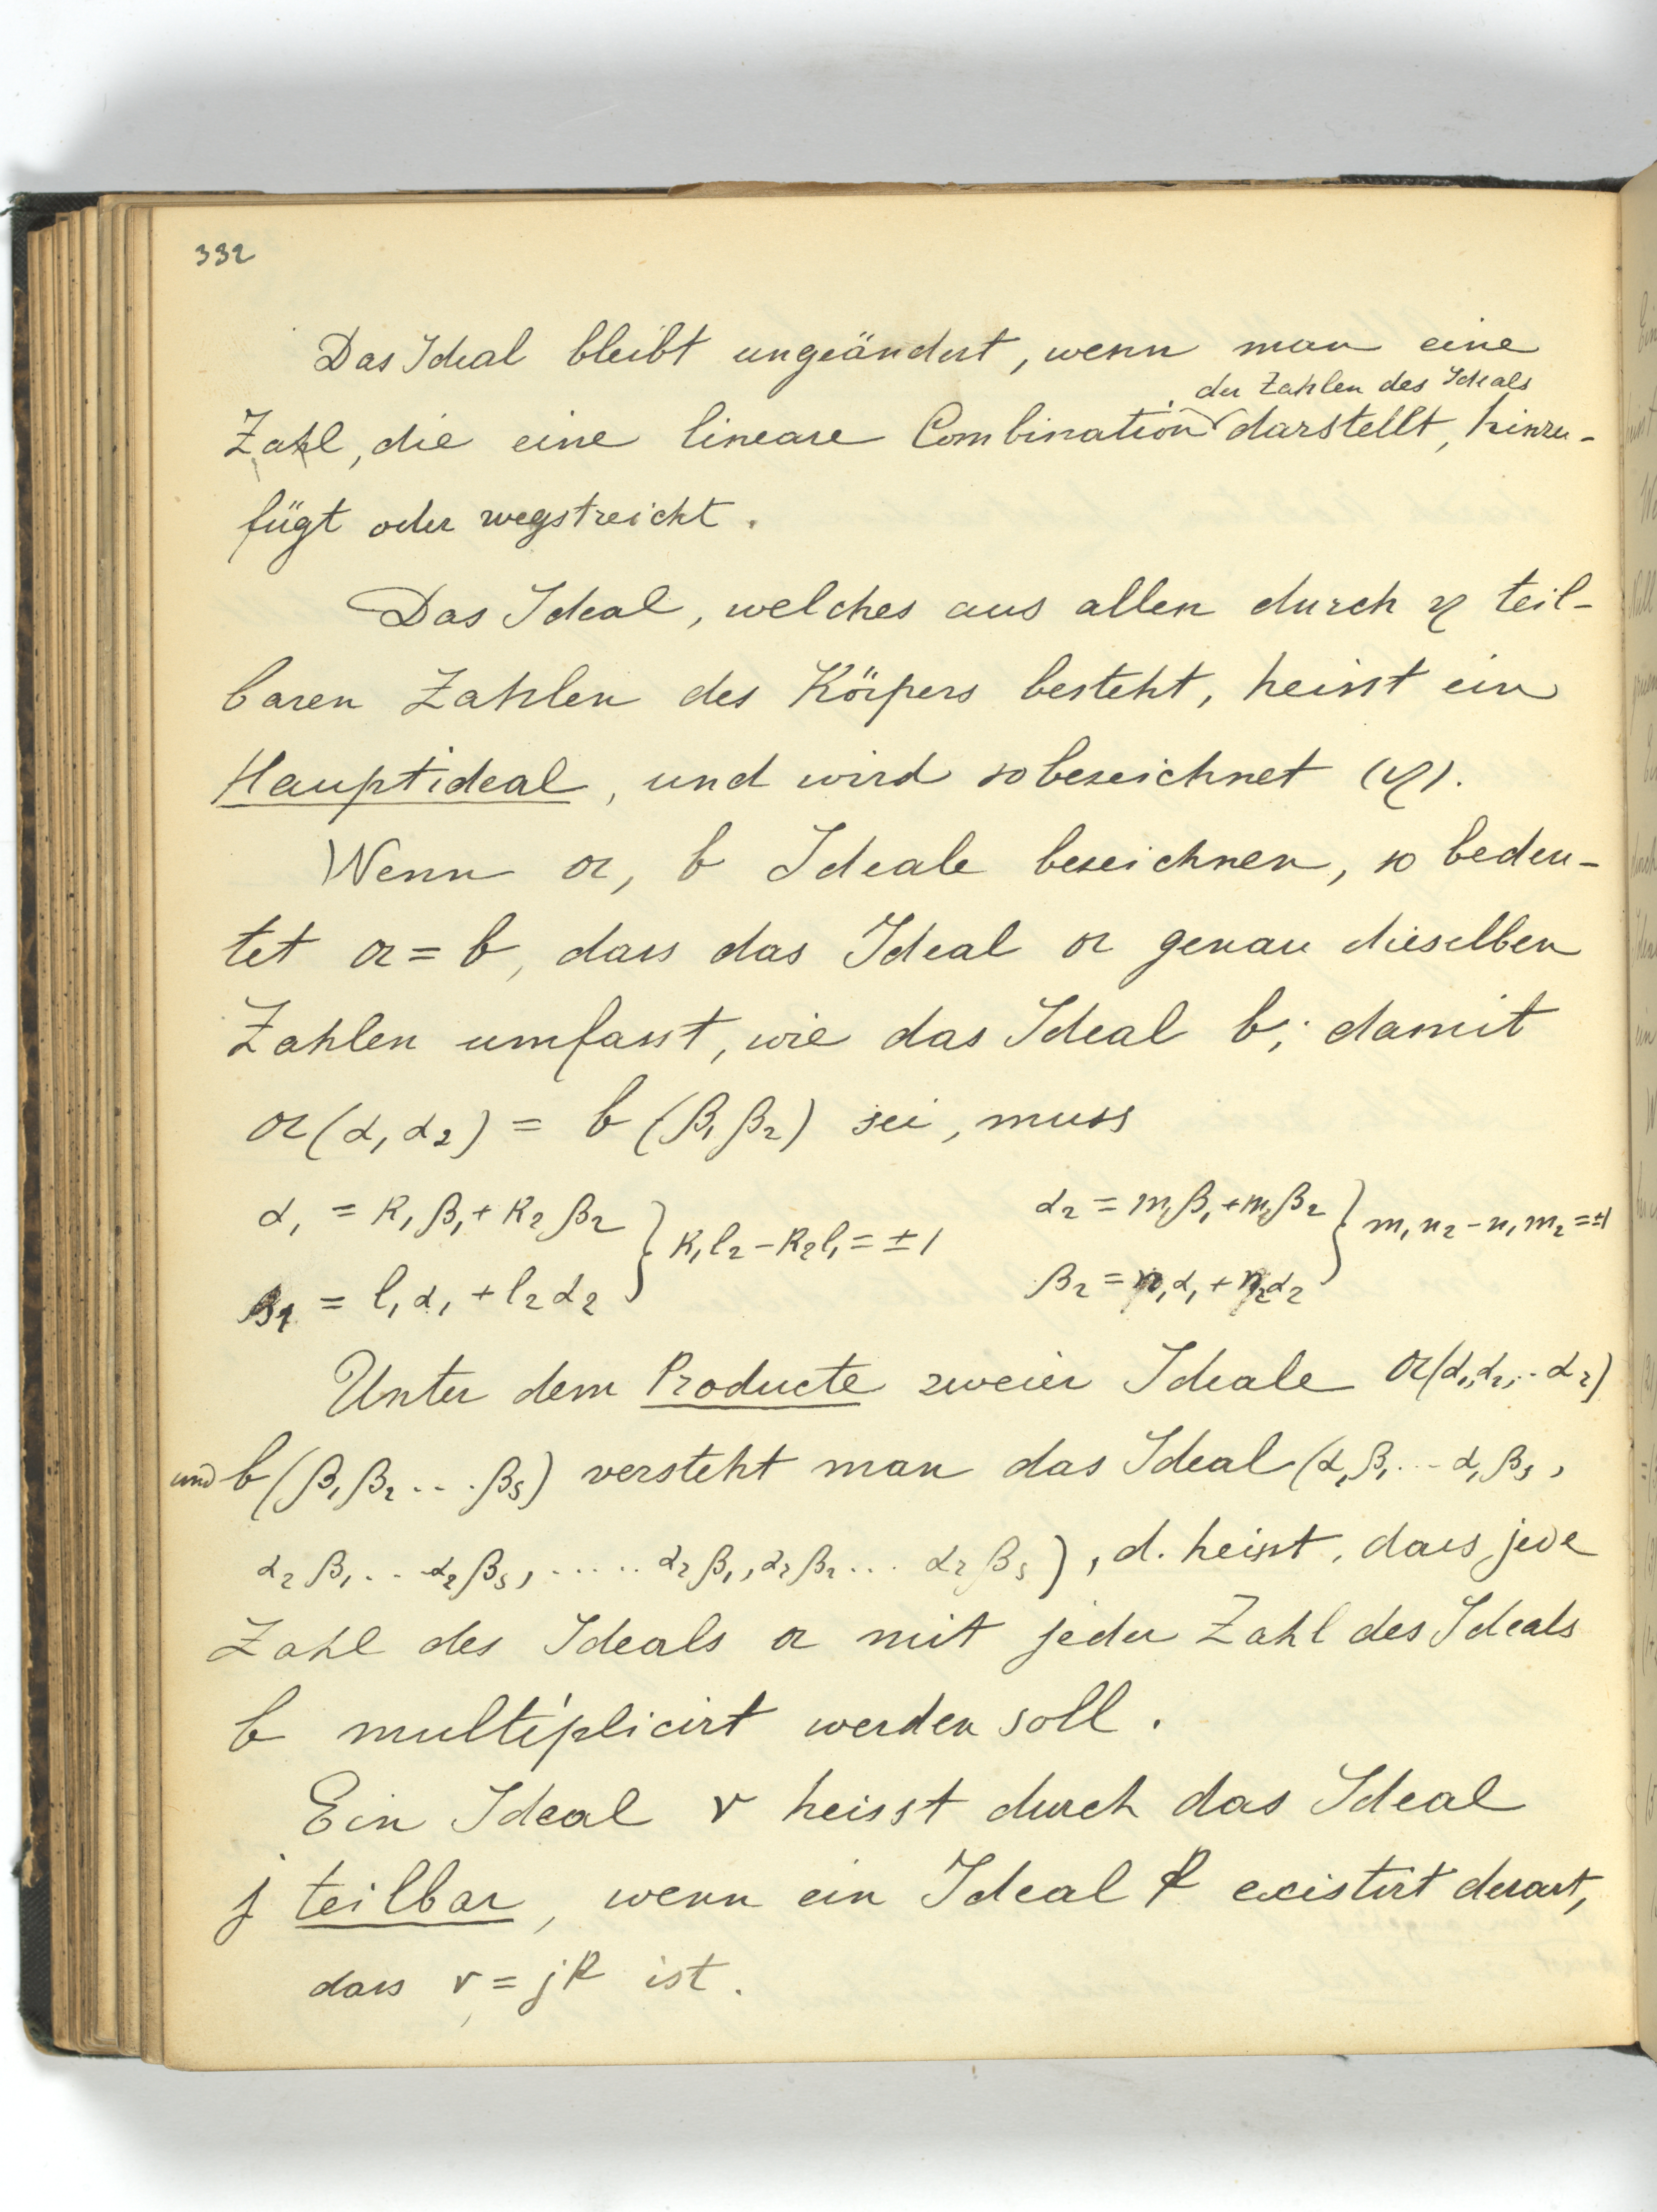 332
Das Ideal bleibt ungeändert, wenn man eine
der Zahlen des Ideals
Zahl, die eine lineare Combination darstellt, hinzu-
fügt oder wegstreicht.
Das Ideal, welches aus allen durch η teil-
baren Zahlen des Körpers besteht, heisst ein
Hauptideal, und wird so bezeichnet (η).
Wenn 𝔞, 𝔟 Ideale bezeichnen, so bedeu-
tet 𝔞 = 𝔟, dass das Ideal 𝔞 genau dieselben
Zahlen umfasst, wie das Ideal 𝔟; damit
𝔞(α₁ α₂) = 𝔟(β₁ β₂) sei, muss
α₁ = k₁β₁ + k₂β₂ } k₁l₂ - k₂l₁ = ±1 α₂ = m₁β₁ + m₂β₂ } m₁n₂ - n₁m₂ = ±1
β₁ = l₁α₁ + l₂α₂ β₂ = n₁α₁ + n₂α₂
Unter dem Producte zweier Ideale 𝔞(α₁,α₂,..αr)
und 𝔟(β₁β₂....βs) versteht man das Ideal (α₁β₁...α₁βs,
α₂β₁...α₂βs, ..... αrβ₁, αrβ₂... αrβs), d. heisst, dass jede
Zahl des Ideals 𝔞 mit jeder Zahl des Ideals
𝔟 multiplicirt werden soll.
Ein Ideal r heisst durch das Ideal
j teilbar, wenn ein Ideal k existirt derart,
dass r = jk ist.